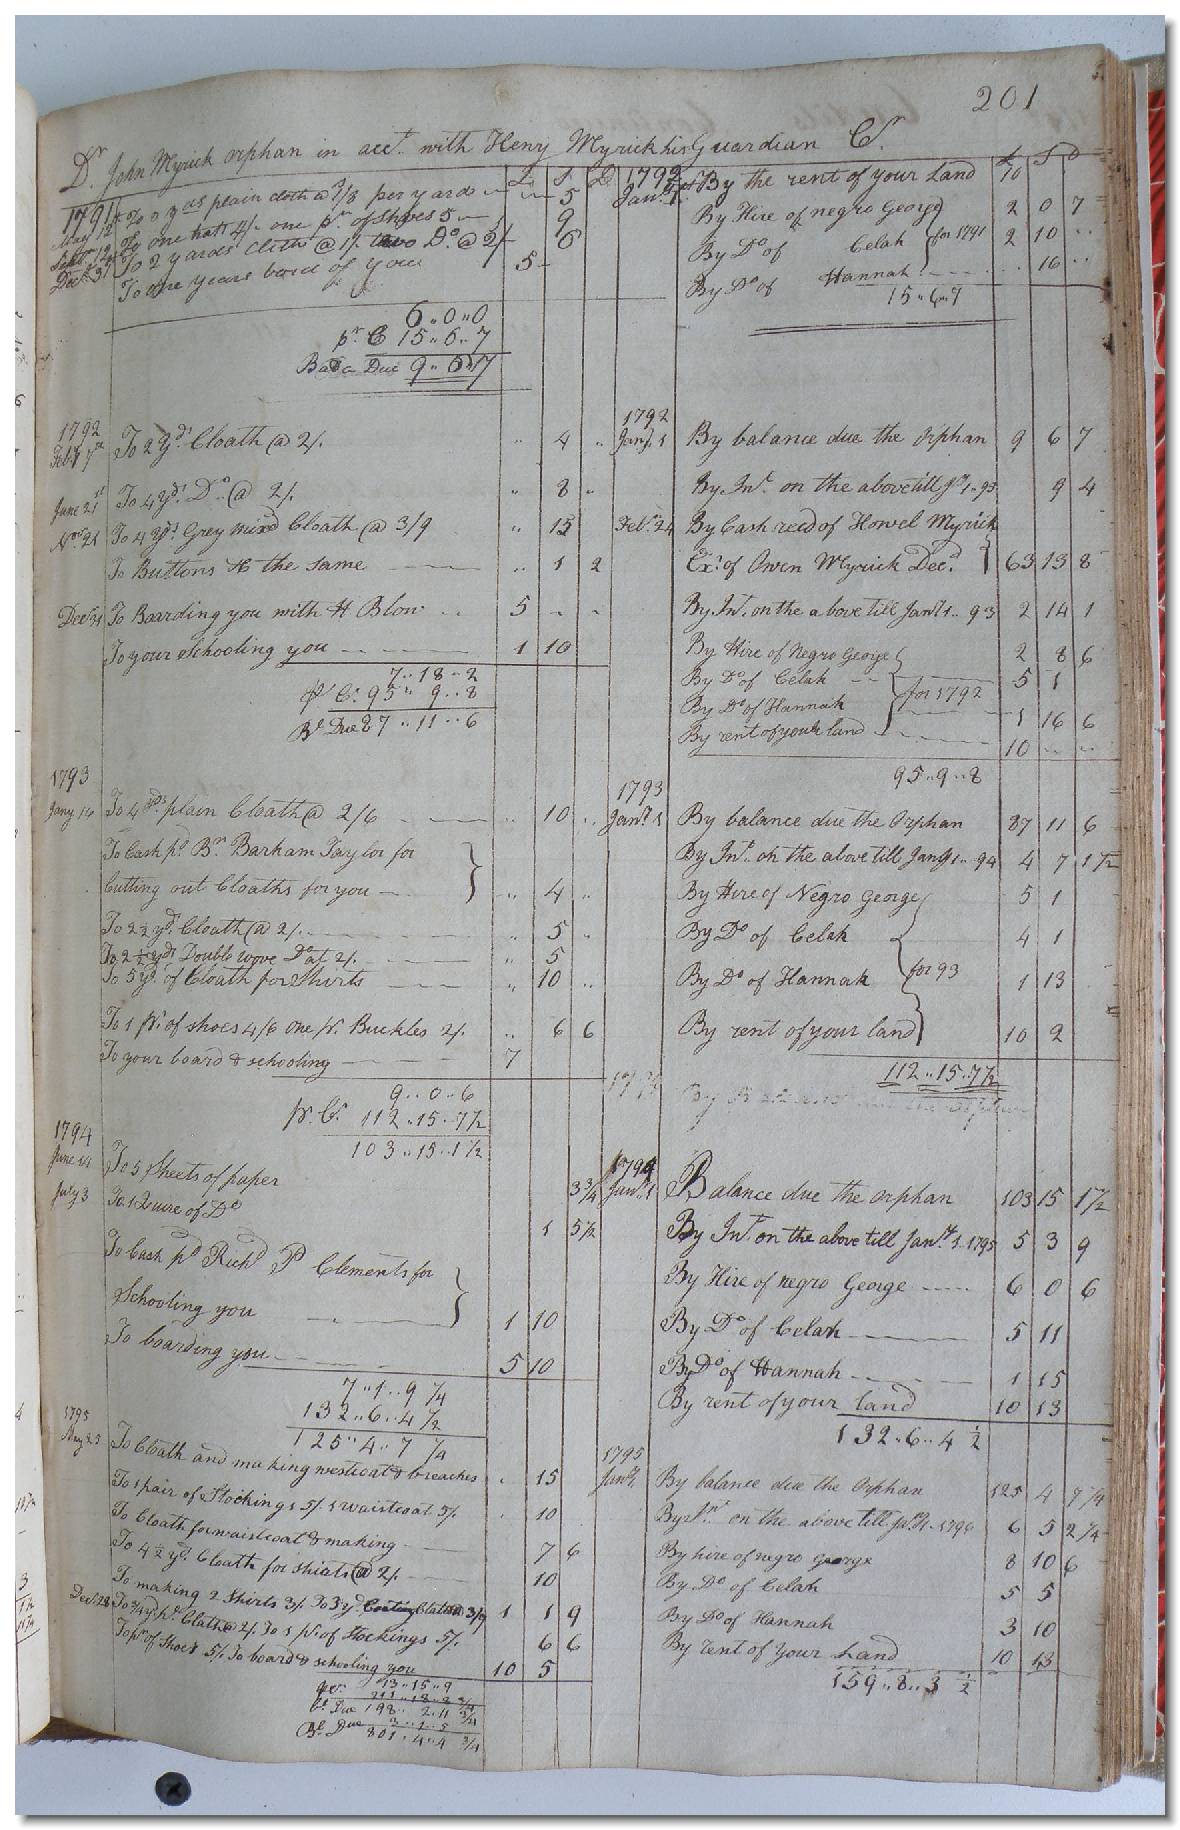 201
Dr. John Myrick orphan in acct. with Henry Myrick his Guardian Cr.
£ S D
1791
May 12 To 2 yds plain cloth @ per yard 5
Sept 12 To one hatt 4/- one pr. of shoes 5 9
To 2 yards Cloth @ 1/. two Do. @ 2/ 6
Decr. 31 To one years bord of you 5
6..0..0
pr. C 15..6..7
Due 9..6..7
1792
Jany. 1st By the rent of your Land 10
By Hire of negro George 2 0 7
By Do of Celah for 1791 2 10 ..
By Do of Hannah 16 ..
15..6..7
1792
Feby 7th To 2 yds Cloath @ 2/. .. 4 ..
June 21st To 4 yds. Do. @ 2/. .. 8 ..
Novr. 21 To 4 yds Grey mixd Cloath @ 3/9 .. 15
To Buttons to the same .. 1 2
Decr 31 To Boarding you with H Blow .. 5 - -
To your schooling you 1 10
7..18..2
pr Cr. 95..9..8
Bl. Due 87..11..6
1792
Jany. 1 By balance due the orphan 9 6 7
By Int. on the above till Jany 1..93 9 4
Feby. 24 By Cash recd of Howel Myrick
Exr. of Owen Myrick Decd. 63 13 8
By Int. on the above till Jany 1..93 2 14 1
By Hire of Negro George 2 8 6
By Do of Celah 5 1
By Do of Hannah for 1792 1 16 6
By rent of your land 10 .. ..
95..9..8
1793
Jany 14 To 4 yds. plain Cloath @ 2/6 .. 10 ..
To Cash pd. Bn. Barham Taylor for
Cutting out Cloaths for you .. 4 ..
To 2 1/2 yds. Cloath @ 2/. .. 5 ..
To 2 1/2 yds Double wove Do at 2/. .. 5
To 5 yds. of Cloath for Shirts .. 10 ..
To 1 pr. of shoes 4/6 one pr. Buckles 2/. .. 6 6
To your board & schooling 7
9..0..6
pr. Cr. 112..15..7½
103..15..1½
1793
Jany. 1 By balance due the Orphan 87 11 6
By Int. on the above till Jany 1..94 4 7 1½
By Hire of Negro George 5 1
By Do of Celah 4 1
By Do of Hannah for 93 1 13
By rent of your land 10 2
112..15..7½
1794
June 14 To 5 Sheets of paper 3¾
July 3 To 1 Quire of Do 1 5½
To Cash pd Richd P Clements for
Schooling you 1 10
To boarding you 5 10
7..1..9 ¼
132..6..4 ½
125..4..7 ¼
1794
Jany. 1 Balance due the orphan 103 15 1½
By Int. on the above till Jany. 1. 1795 5 3 9
By Hire of negro George 6 0 6
By Do of Celah 5 11
By Do of Hannah 1 15
By rent of your land 10 13
132..6..4 ½
1795
To Cloath and making westcoat & breaches . 15
To 1 pair of Stockings 5/. 1 waistcoat 5/. . 10
To Cloath for waistcoat & making 7 6
To 4 ½ yds. Cloath for shirts @ 2/. 10
To making 2 Shirts 3/. To 3 yds Cloath @ 3/9 1 1 9
Decr. 28 To ¾ yd. pn. Cloth @ 2/. To 1 pr. of Stockings 5/. 6 6
To pr of Shoes 5/. To board & schooling you 10 5
13..15..9
Bl. Due 198..2..11 ¾
Bl. Due 801..4..4 ¾
1795
Jany 1. By balance due the Orphan 125 4 7¼
By Int. on the above till Jany 1. 1796 6 5 2¼
By hire of negro george 8 10 6
By Do of Celah 5 5
By Do of Hannah 3 10
By rent of your Land 10 13
159..8..3 ½